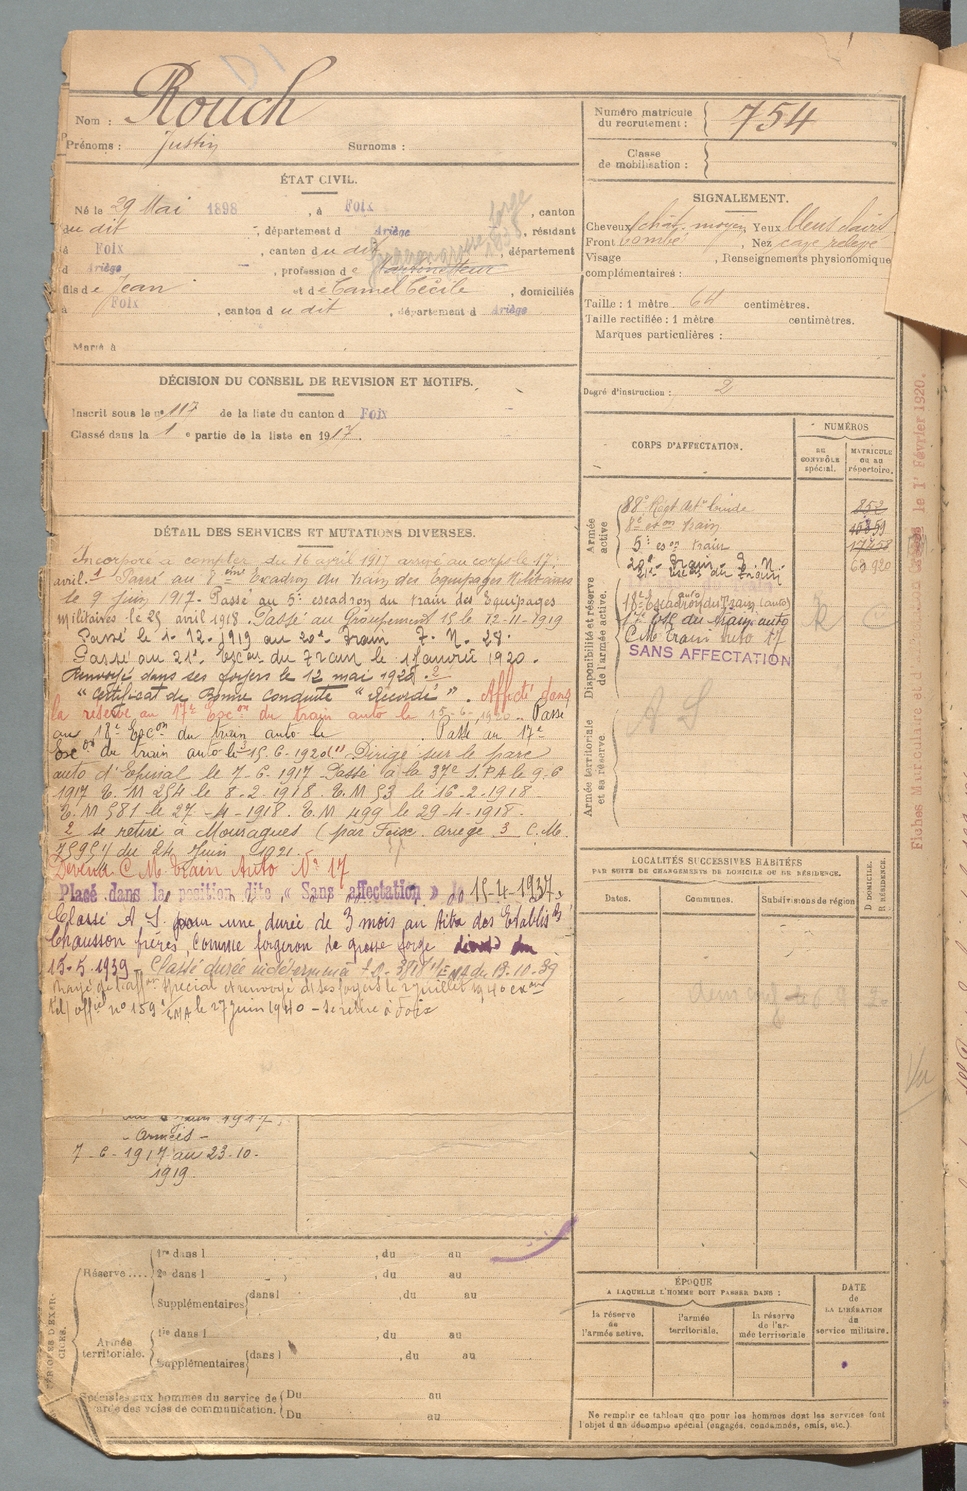 Nom : Rouch
Prénoms : Justin Surnoms :
Numéro matricule du recrutement : 754
Classe de mobilisation :
ÉTAT CIVIL.
Né le 29 Mai 1898, à Foix, canton
du dit, département d Ariège, résidant
à Foix, canton du dit, département
d Ariège, profession de
fils de Jean et de Camel Cécile, domiciliés
à Foix, canton du dit, département d Ariège
Marié à
SIGNALEMENT.
Cheveux chât. moyen Yeux bleus clairs
Front bombé, Nez cave relevé
Visage, Renseignements physionomiques
complémentaires :
Taille : 1 mètre 64 centimètres.
Taille rectifiée : 1 mètre centimètres.
Marques particulières :
Degré d'instruction : 2
DÉCISION DU CONSEIL DE REVISION ET MOTIFS.
Inscrit sous le n° 117 de la liste du canton d Foix
Classé dans la 1e partie de la liste en 1917.
DÉTAIL DES SERVICES ET MUTATIONS DIVERSES.
Incorporé à compter du 16 avril 1917 arrivé au corps le 17
avril. 1 Passé au 8ème Escadron du train des Equipages Militaires
le 9 juin 1917. Passé au 5e escadron du train des Equipages
militaires le 25 avril 1918. Passé au Groupement 15 le 12-11-1919
Passé le 1-12-1919 au 20e Train 7. N. 28.
Passé au 21e Escon du Train le 1 Janvier 1920.
Renvoyé dans ses foyers le 12 mai 1920. 2
"Certificat de Bonne Conduite "Accordé". Affecté dans
la réserve au 17e Escon du train auto le 15-6-1920. Passé
au 18e Escon du train auto le Passé au 17e
Escon du train auto le 15-6-1920 (1) Dirigé sur le parc
auto d'Epinal le 7-6-1917 Passé à la 37e S.P.A le 9-6
1917 T.M 254 le 8-2-1918. T.M 53 le 16-2-1918.
T.M 581 le 27-4-1918. T.M 499 le 29-4-1918.
2 se retire à (par Foix. Ariège 3 C.M.
du 24 Juin 1921.
Devenu C.M. Train Auto No 17
Placé dans la position dite « Sans affectation » le 15-4-1937.
Classé A.S. pour une durée de 3 mois au titre des Etablis ts
Chausson frères, comme forgeron de grosse forge
15-5-1939 - Classé durée indéterminée du 13-10-39
Rayé de l'affon Spécial et renvoyé dans ses foyers le 2 juillet 1940
n° 159 /EMA le 27 juin 1940 - se retire à Foix
- Armées -
7-6-1917 au 23-10-
1919
CORPS D'AFFECTATION.
NUMÉROS
DE CONTRÔLE spécial.
MATRICULE OU AU répertoire.
Armée active
88e Régt d'Art. lourde 852
8e eson train
5e eson train 17458
20e Train 7. N.
21e
Disponibilité et réserve de l'armée active.
18e Escadron du Train (auto)
17e Esc du train auto
C.M. Train auto 17
SANS AFFECTATION
Armée territoriale et sa réserve.
A S
LOCALITÉS SUCCESSIVES HABITÉES
PAR SUITE DE CHANGEMENTS DE DOMICILE OU DE RÉSIDENCE.
Dates. Communes. Subdivisions de région D DOMICILE. R RÉSIDENCE.
PÉRIODES D'EXERCICES.
Réserve.... 1re dans l, du au
2e dans l, du au
Supplémentaires dans l, du au
Armée territoriale. 1re dans l, du au
Supplémentaires dans l, du au
Spéciales aux hommes du service de garde des voies de communication. Du au
Du au
ÉPOQUE
A LAQUELLE L'HOMME DOIT PASSER DANS :
la réserve de l'armée active. l'armée territoriale. la réserve de l'armée territoriale
DATE de LA LIBÉRATION du service militaire.
Ne remplir ce tableau que pour les hommes dont les services font
l'objet d'un décompte spécial (engagés, condamnés, omis, etc.)
le 1er Février 1920.